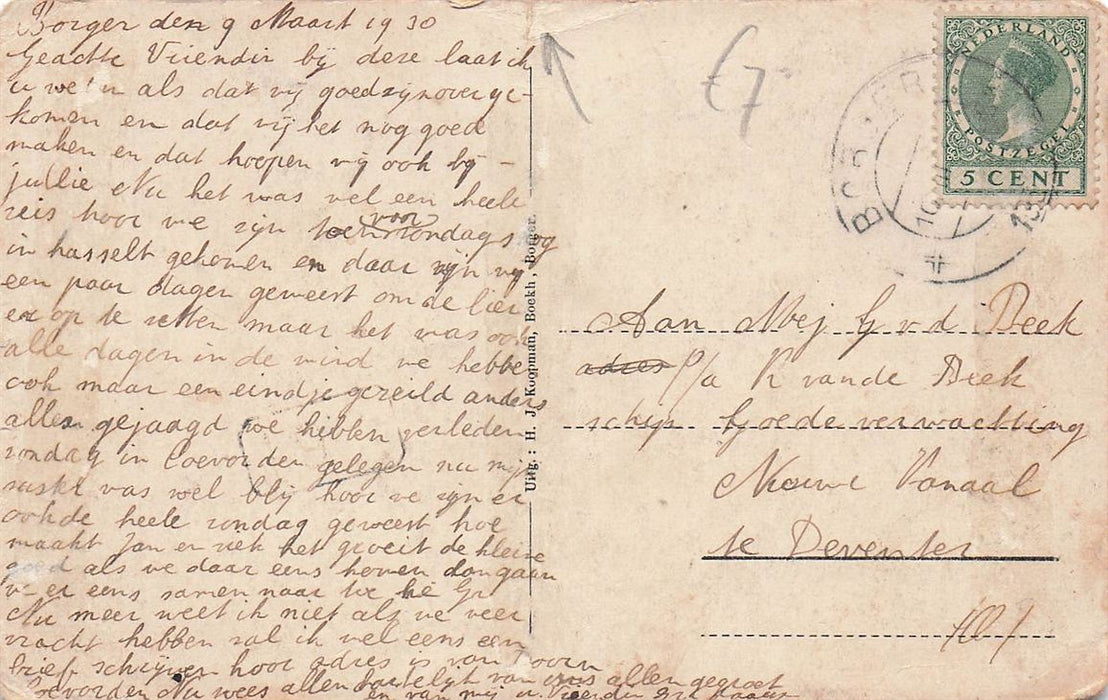 Borger den 9 Maart 1930
Geachte Vriendin bij deze laat ik
u wetn als dat wij goed zijn overge-
komen en dat wij het nog goed
maken en dat hoopen wij ook bij -
jullie Nu het was wel een heele
reis hoor we zijn voor zondags
in hasselt gekomen en daar zijn wij
een paar dagen geweest om de lier
er op te zetten maar het was ook
alle dagen in de wind we hebbe
ook maar een eindje gezeild anders
alles gejaagd we hebben verleden
zondag in Coevorden gelegen nu mijn
was wel blij hoor we zijn er
ook de heele zondag geweest hoe
maakt Jan er het groeit de kleine
goed als we daar eens komen dan gaan
we er eens samen naar toe hé
Nu meer weet ik niet als we weer
vracht hebben zal ik wel eens een
brief schrijven hoor adres is van
Coevorden Nu wees allen hartelijk van ons allen gegroet
en van mij u
Uitg.: H. J. Koopman, Boekh., Borger.
€7-
NEDERLAND
POSTZEGEL
5 CENT
BORGER
10
Aan Mej G v.d Beek
adres P/a R van de Beek
schip Goede verwachting
Nieuwe Kanaal
te Deventer